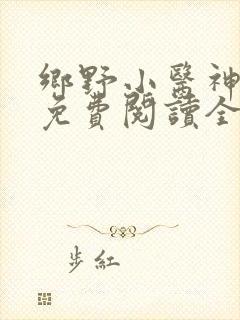 鄉野小醫神
免費閱讀全
步紅